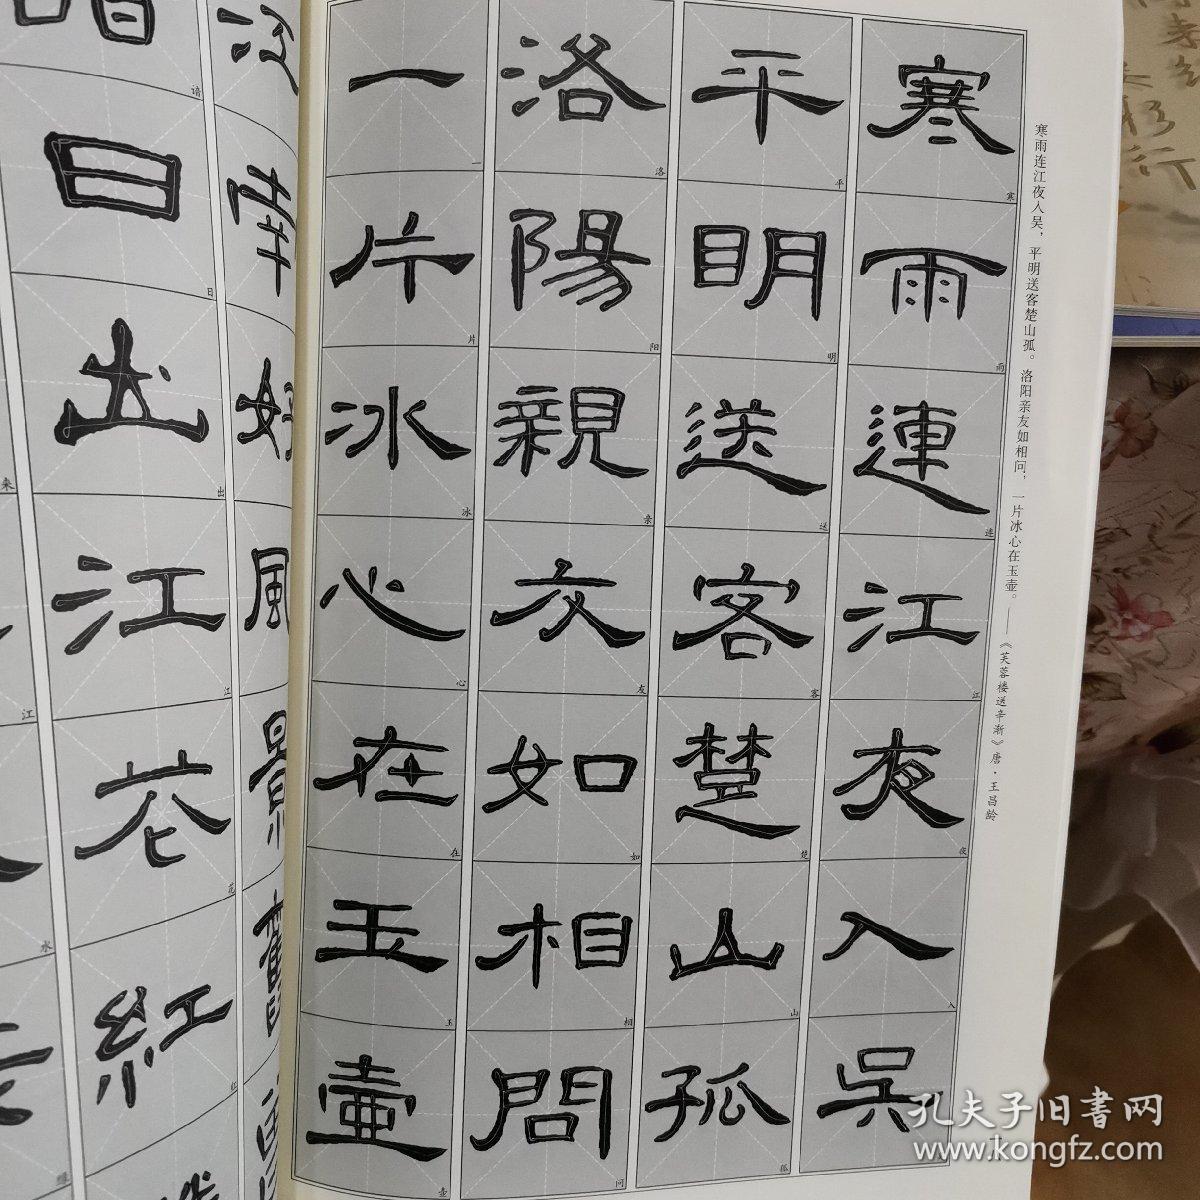 寒雨連江夜入吳
平明送客楚山孤
洛陽親友如相問
一片冰心在玉壺
寒雨连江夜入吴，平明送客楚山孤。洛阳亲友如相问，一片冰心在玉壶。——《芙蓉楼送辛渐》唐·王昌龄
寒
雨
连
江
夜
入
平
明
送
客
楚
山
孤
洛
阳
亲
友
如
相
问
一
片
冰
心
在
玉
壶
好風景舊
日出江花紅
谙
日
出
江
花
红
来
江
水
绿
孔夫子旧书网
www.kongfz.com